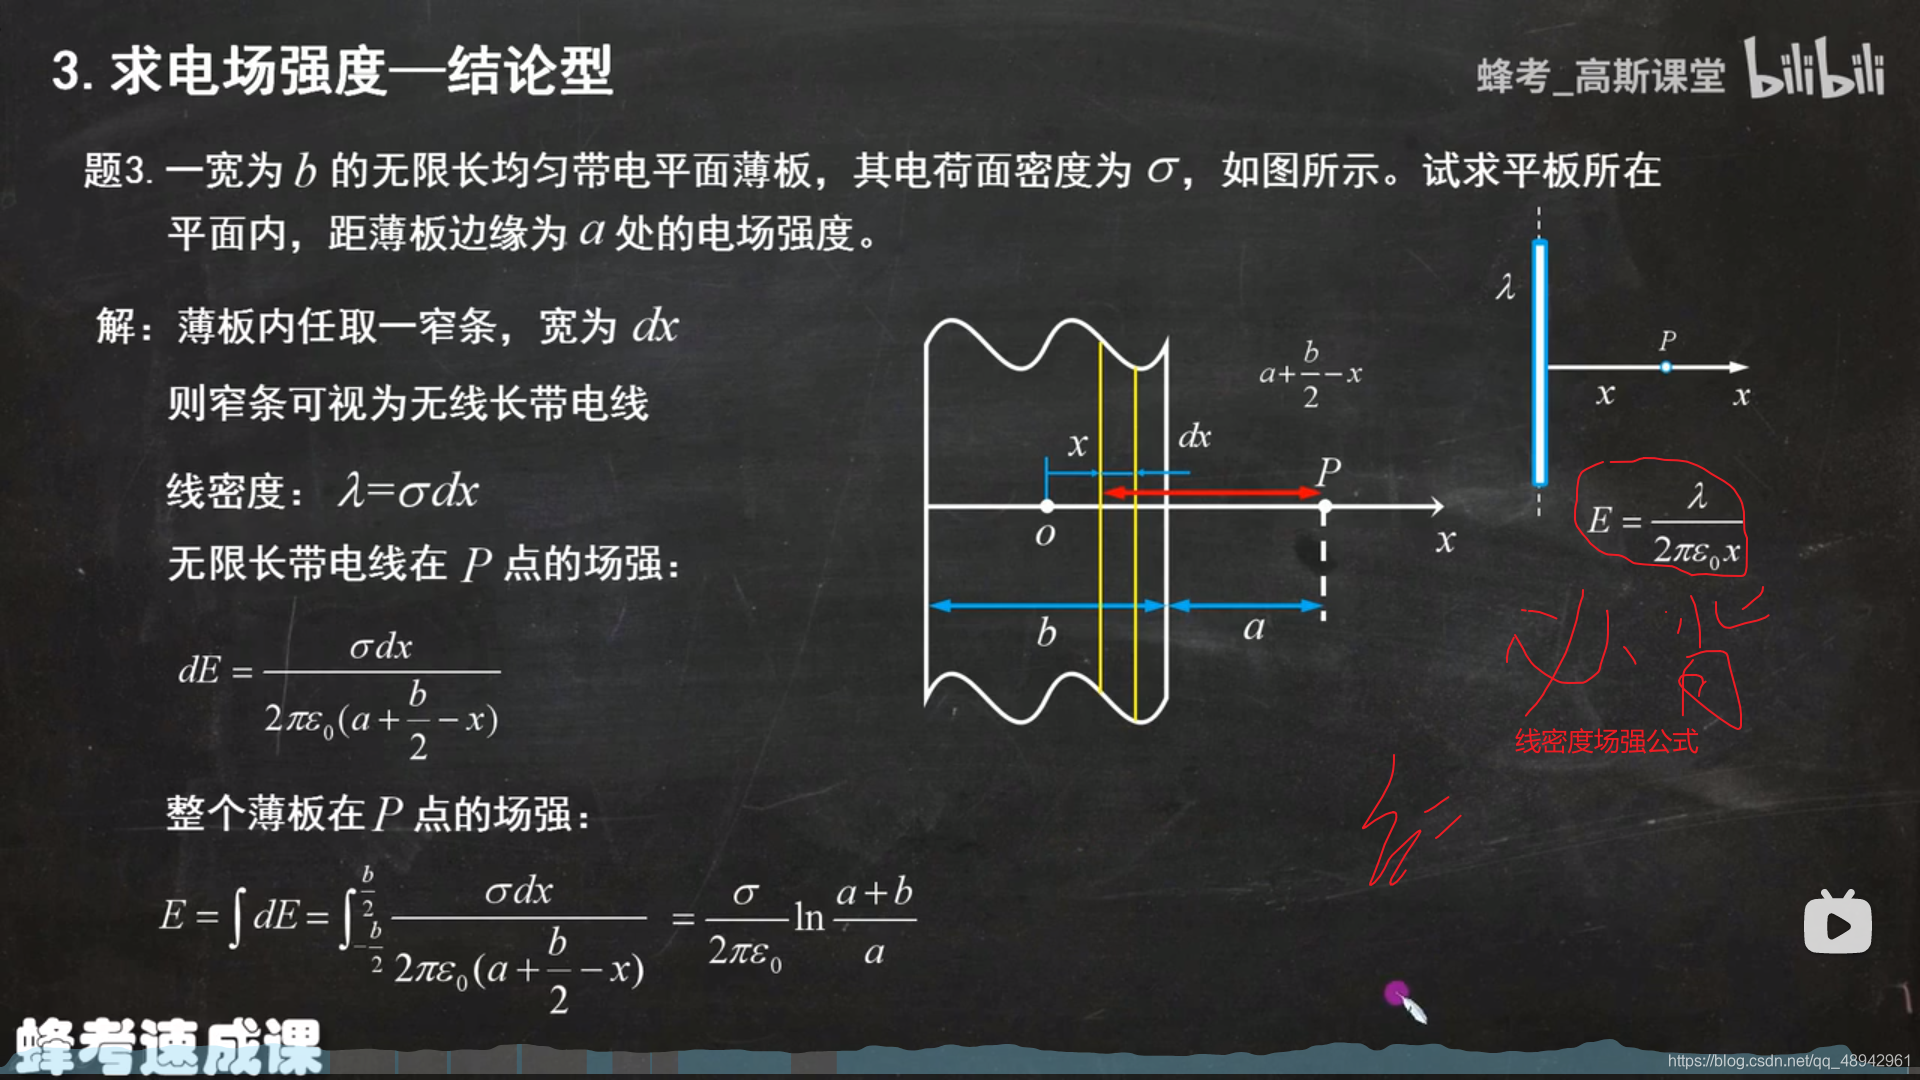 3.求电场强度—结论型
蜂考_高斯课堂 bilibili
题3.一宽为 b 的无限长均匀带电平面薄板，其电荷面密度为 σ，如图所示。试求平板所在
平面内，距薄板边缘为 a 处的电场强度。
解：薄板内任取一窄条，宽为 dx
则窄条可视为无线长带电线
线密度：λ=σdx
无限长带电线在 P 点的场强：
dE = σdx / 2πε₀(a + b/2 − x)
整个薄板在 P 点的场强：
E = ∫dE = ∫_{-b/2}^{b/2} σdx / 2πε₀(a + b/2 − x) = σ/2πε₀ ln (a+b)/a
a + b/2 − x
x
dx
P
o
x
b
a
λ
P
x
x
E = λ / 2πε₀x
必背
线密度场强公式
蜂考速成课
https://blog.csdn.net/qq_48942961